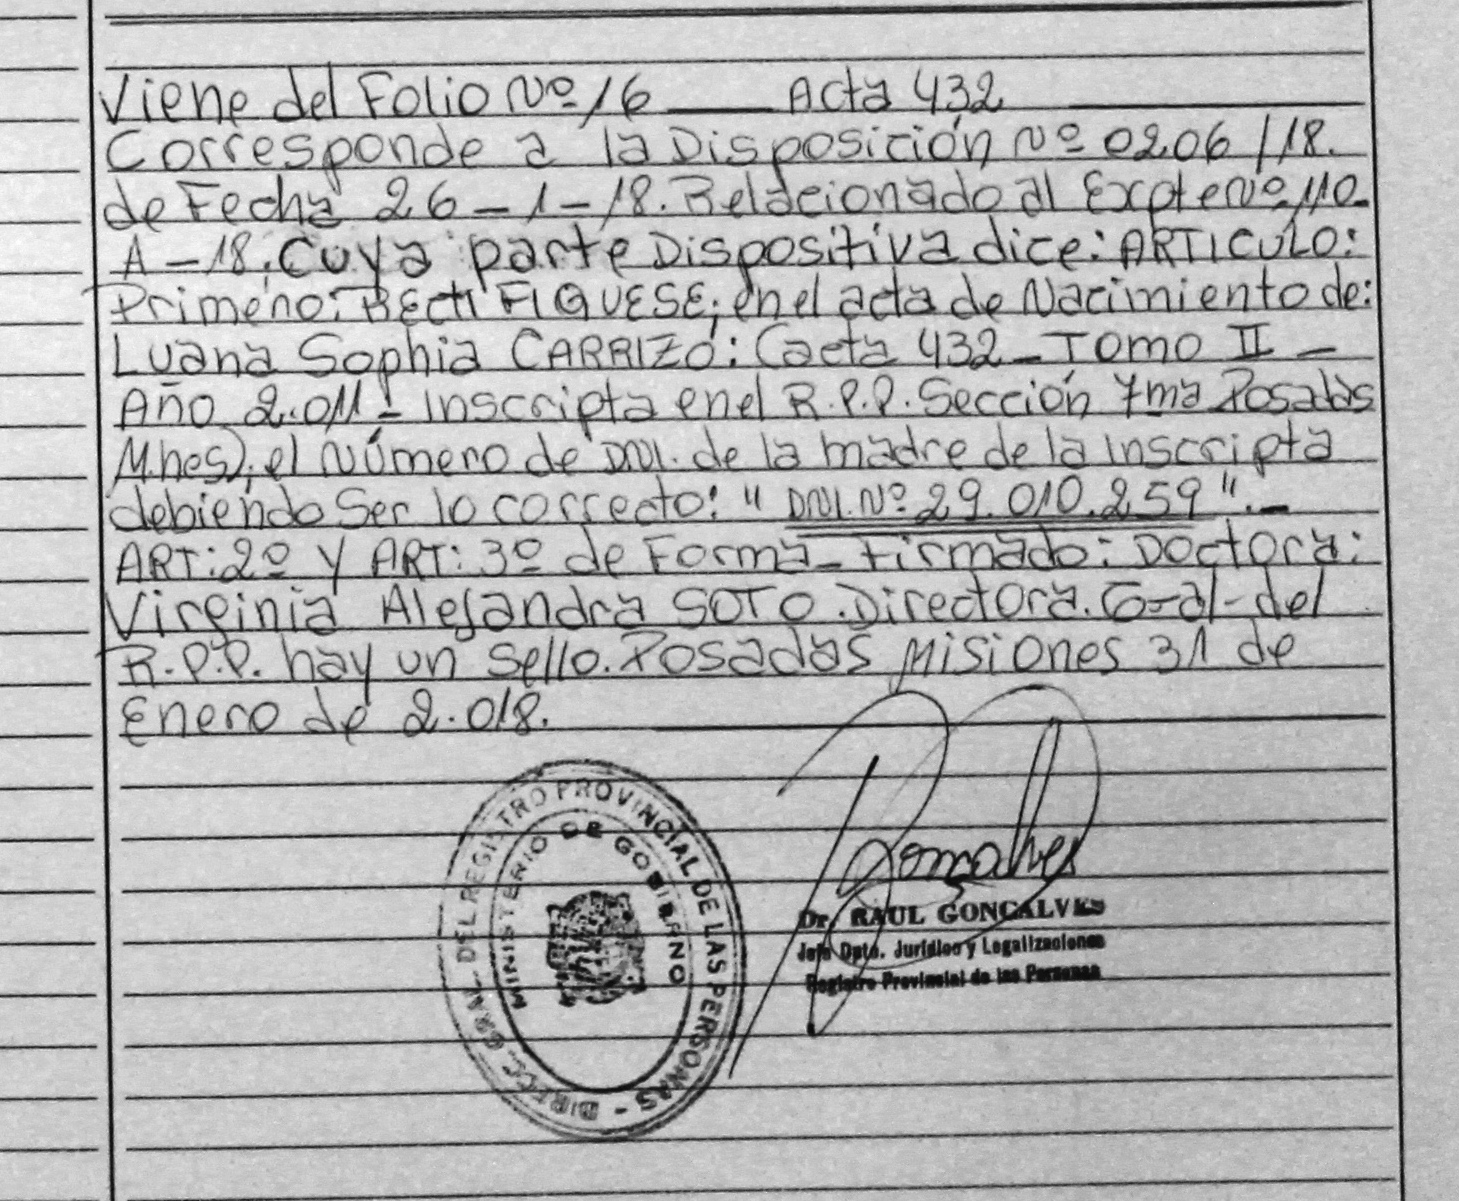 Viene del Folio Nº 16 ___ Acta 432
Corresponde a la Disposición Nº 0206/18.
de Fecha 26-1-18. Relacionado al Expte Nº 110-
A-18, Cuya parte Dispositiva dice: ARTICULO:
Primero: RECTIFIQUESE; en el acta de Nacimiento de:
Luana Sophia CARRIZO: (acta 432 - Tomo II -
Año 2.011 - Inscripta en el R.P.P. Sección 7ma Posadas
Mnes), el Número de DNI. de la madre de la inscripta
debiendo Ser lo correcto: "DNI. Nº 29.010.259".-
ART: 2º Y ART: 3º de Forma - Firmado: Doctora:
Virginia Alejandra SOTO. Directora. G-al- del
R.P.P. hay un sello. Posadas Misiones 31 de
Enero de 2.018.
DIREC. GRAL. DEL REGISTRO PROVINCIAL DE LAS PERSONAS -
MINISTERIO DE GOBIERNO
Goncalves
Dr. RAUL GONCALVES
Jefe Dpto. Jurídico y Legalizaciones
Registro Provincial de las Personas